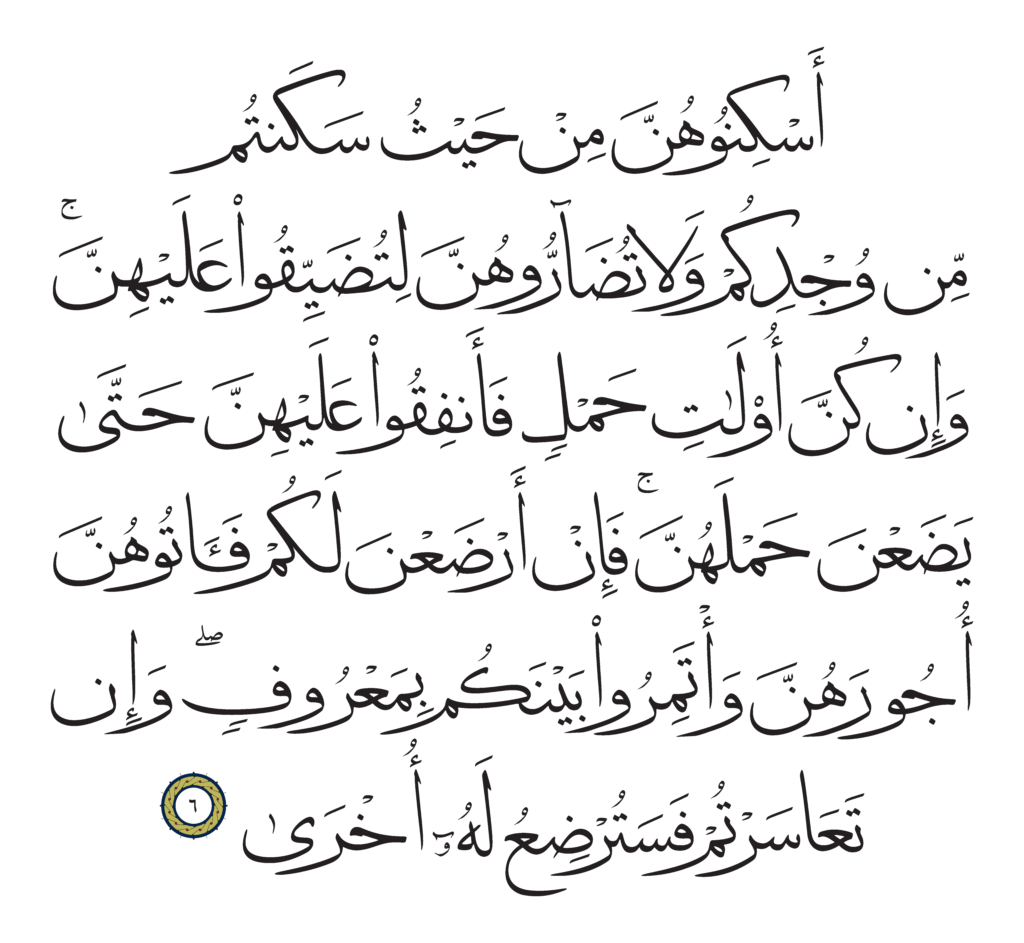 أَسْكِنُوهُنَّ مِنْ حَيْثُ سَكَنتُم
مِّن وُجْدِكُمْ وَلَا تُضَآرُّوهُنَّ لِتُضَيِّقُوا۟ عَلَيْهِنَّ ۚ
وَإِن كُنَّ أُو۟لَـٰتِ حَمْلٍ فَأَنفِقُوا۟ عَلَيْهِنَّ حَتَّىٰ
يَضَعْنَ حَمْلَهُنَّ ۚ فَإِنْ أَرْضَعْنَ لَكُمْ فَـَٔاتُوهُنَّ
أُجُورَهُنَّ وَأْتَمِرُوا۟ بَيْنَكُم بِمَعْرُوفٍ ۖ وَإِن
تَعَاسَرْتُمْ فَسَتُرْضِعُ لَهُۥٓ أُخْرَىٰ ٦